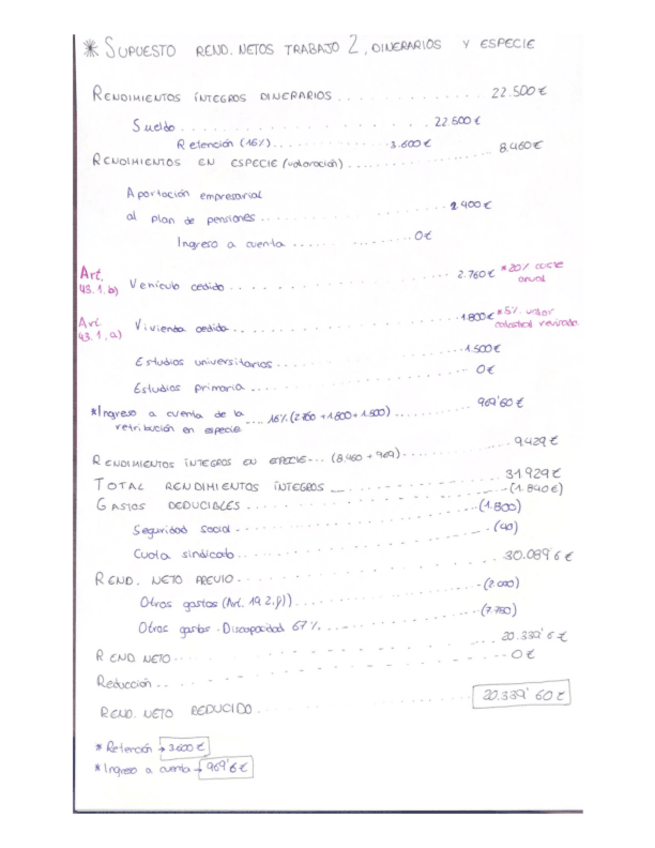 * SUPUESTO REND. NETOS TRABAJO 2, DINERARIOS Y ESPECIE
RENDIMIENTOS ÍNTEGROS DINERARIOS .......... 22.500€
Sueldo .......... 22.500€
Retención (16%) .......... 3.600€
RENDIMIENTOS EN ESPECIE (valoración) .......... 8.460€
Aportación empresarial
al plan de pensiones .......... 2400€
Ingreso a cuenta .......... 0€
Art. 43.1.b) Vehículo cedido .......... 2.760€ *20% coste anual
Art. 43.1.a) Vivienda cedida .......... 1.800€ *5% valor catastral revisado.
Estudios universitarios .......... 1.500€
Estudios primaria .......... 0€
*Ingreso a cuenta de la retribución en especie .... 16% (2.760 + 1.800 + 1.500) .......... 969'60€
RENDIMIENTOS ÍNTEGROS EN ESPECIE --- (8.460 + 969) .......... 9.429€
TOTAL RENDIMIENTOS ÍNTEGROS .......... 31929€
GASTOS DEDUCIBLES .......... (1.840€)
Seguridad social .......... (1.800)
Cuota sindicato .......... (40)
REND. NETO PREVIO .......... 30.089'6€
Otros gastos (Art. 19.2.f)) .......... (2.000)
Otros gastos - Discapacidad 67% .......... (7.750)
REND NETO .......... 20.339'6€
Reducción .......... 0€
REND. NETO REDUCIDO .......... 20.339'60€
* Retención → 3.600€
* Ingreso a cuenta → 969'6€